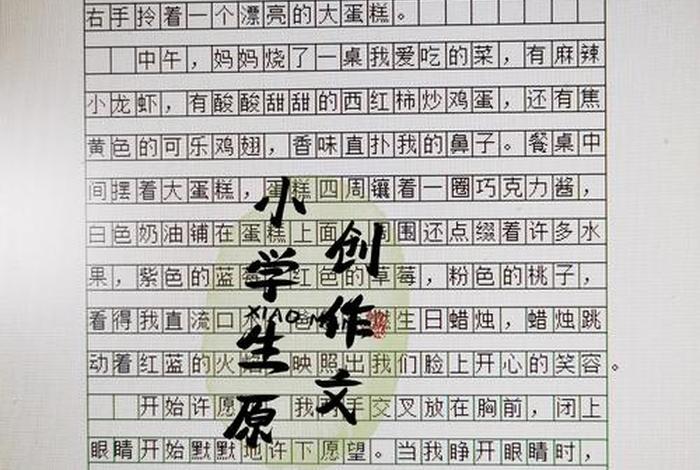 右手拎着一个漂亮的大蛋糕。
中午，妈妈烧了一桌我爱吃的菜，有麻辣
小龙虾，有酸酸甜甜的西红柿炒鸡蛋，还有焦
黄色的可乐鸡翅，香味直扑我的鼻子。餐桌中
间摆着大蛋糕，蛋糕四周镶着一圈巧克力酱，
白色奶油铺在蛋糕上面 周围还点缀着许多水
果，紫色的蓝莓 红色的草莓，粉色的桃子，
看得我直流口 生日蜡烛，蜡烛跳
动着红蓝的火 映照出我们脸上开心的笑容。
开始许愿 我 手交叉放在胸前，闭上
眼睛开始默默地许下愿望。当我睁开眼睛时，
小学生原
创作文
XIAO